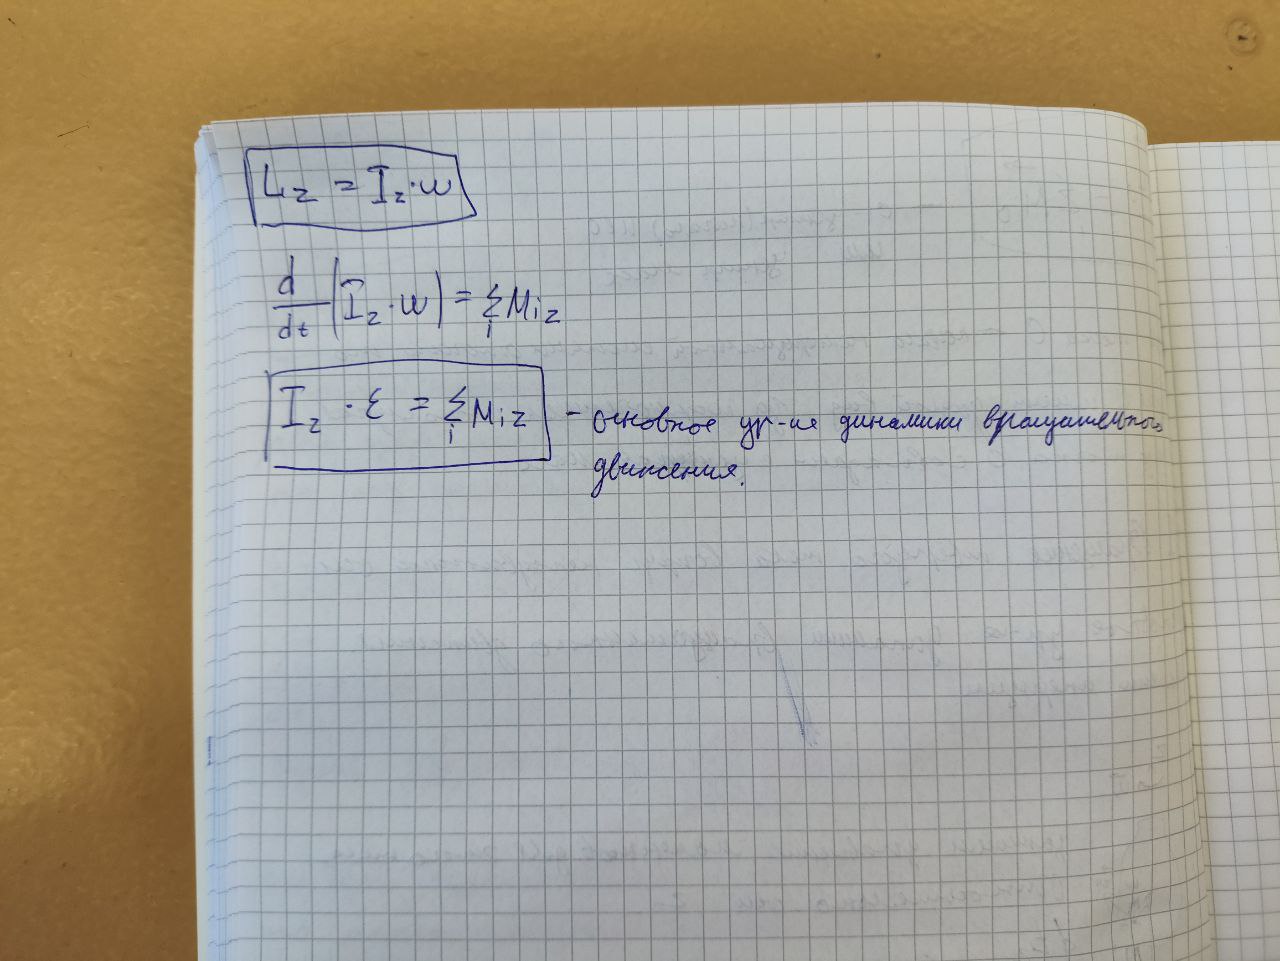 L_z = I_z · ω
d/dt (I_z · ω) = Σ_i M_iz
I_z · ε = Σ_i M_iz - основное ур-ие динамики вращательного
движения.